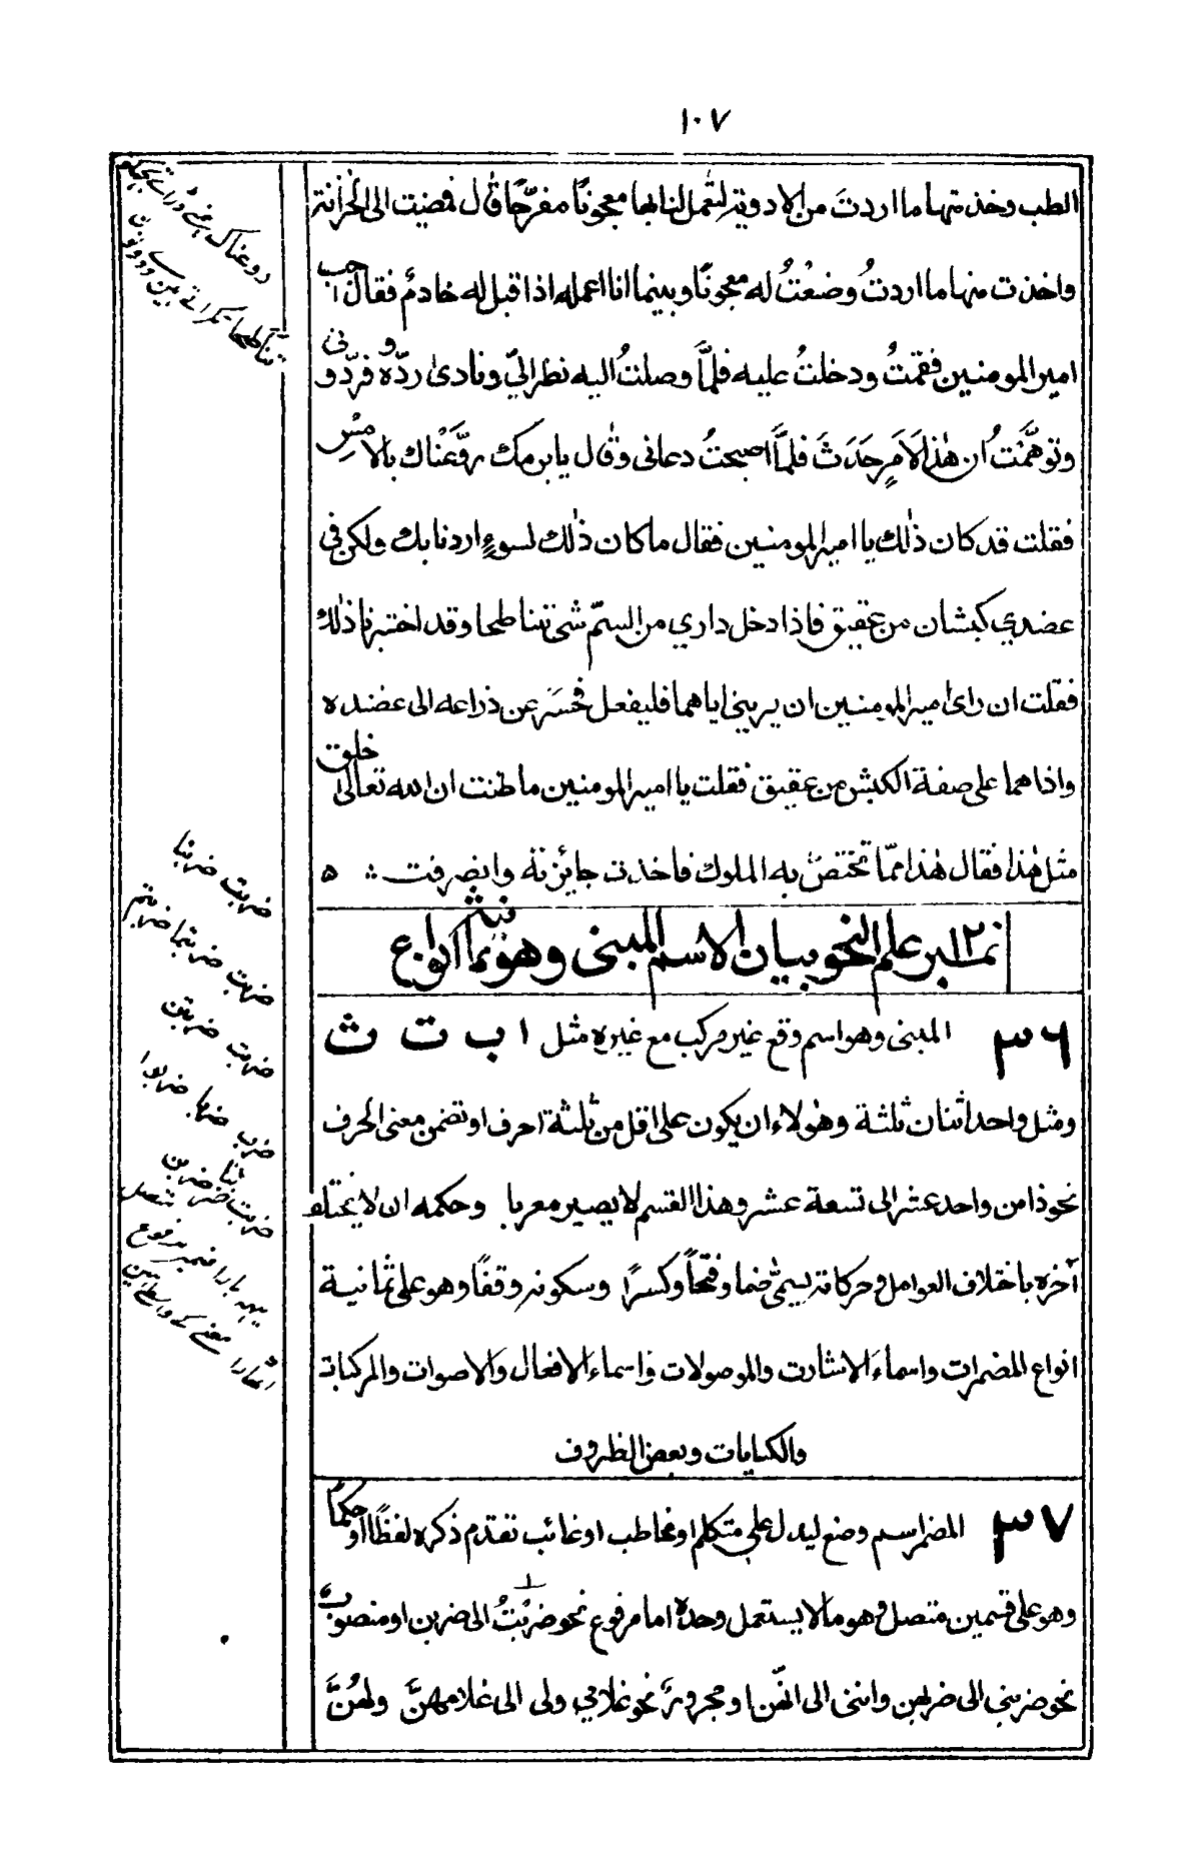 ١٠٧
الطب وخذ منها ما اردتَ من الادوية لتعمل لنا بها معجونًا مفرّحًا قال فمضيت الى الخزانة
واخذت منها ما اردتُ وضعْتُ له معجونًا وبينما انا اعمله اذا قبل له خادمٌ فقال اجب
امير المومنين فقمتُ ودخلتُ عليه فلمَّا وصلتُ اليه نظر اليّ ونادىٰ ردّوه فردّونى
وتوهَّمْتُ ان هٰذا لاَمرٍ حَدَثَ فلمَّا اصبحتُ دعانى وقال يابرمك روَّعْناك بالامْسِ
فقلت قد كان ذٰلك يا امير المومنين فقال ماكان ذٰلك لسوءٍ اردنا بك ولكن فى
عضدي كبشان من عقيق فاذا دخل داري من السمّ شى تناطحا وقد اختبرنا ذٰلك
فقلت ان راى امير المومنين ان يرينى اياهما فليفعل فحَسَر عن ذراعه الى عضده
واذا هما على صفة الكبش من عقيق فقلت يا امير المومنين ما ظننت ان الله تعالى خلق
مثل هٰذا فقال هٰذا ممّا تختصّ به الملوك فاخذت جايزته وانصرفت ؞ ٥
نمبر ١٢ علم النحو بيان الاسم المبنى وهو ثمانية انواع
٣٦ المبنى وهو اسم وقع غير مركب مع غيره مثل ا ب ت ث
ومثل واحد اثنان ثلثة وهٰولاء ان يكون على اقل من ثلثة احرف او تضمن معنى الحرف
نحو ذا من واحد عشر الى تسعة عشر وهذا القسم لا يصير معربا وحكمه ان لا يختلف
آخره باختلاف العوامل وحركاته تسمّى ضما وفتحاً وكسرًا وسكونه وقفًا وهو على ثمانية
انواع المضمرات واسماء الاشارت والموصولات واسماء الافعال والاصوات والمركبات
والكنايات وبعض الظروف
٣٧ المضمر اسم وضع ليدل على متكلم او مخاطب او غائب تقدم ذكره لفظًا او حكمًا
وهو على قسمين متصل وهو ما لا يستعمل وحده اما مرفوع نحو ضربْتُ الى ضربن او منصوب
نحو ضربنى الى ضربهن واننى الى انهّن او مجرور نحو غلامي ولى الى غلامهنَّ ولهُنَّ
ضربت ضربنا
ضربت ضربتما ضربتم
ضربت ضربتن
ضرب ضربا ضربوا
ضربت ضربتا ضربن